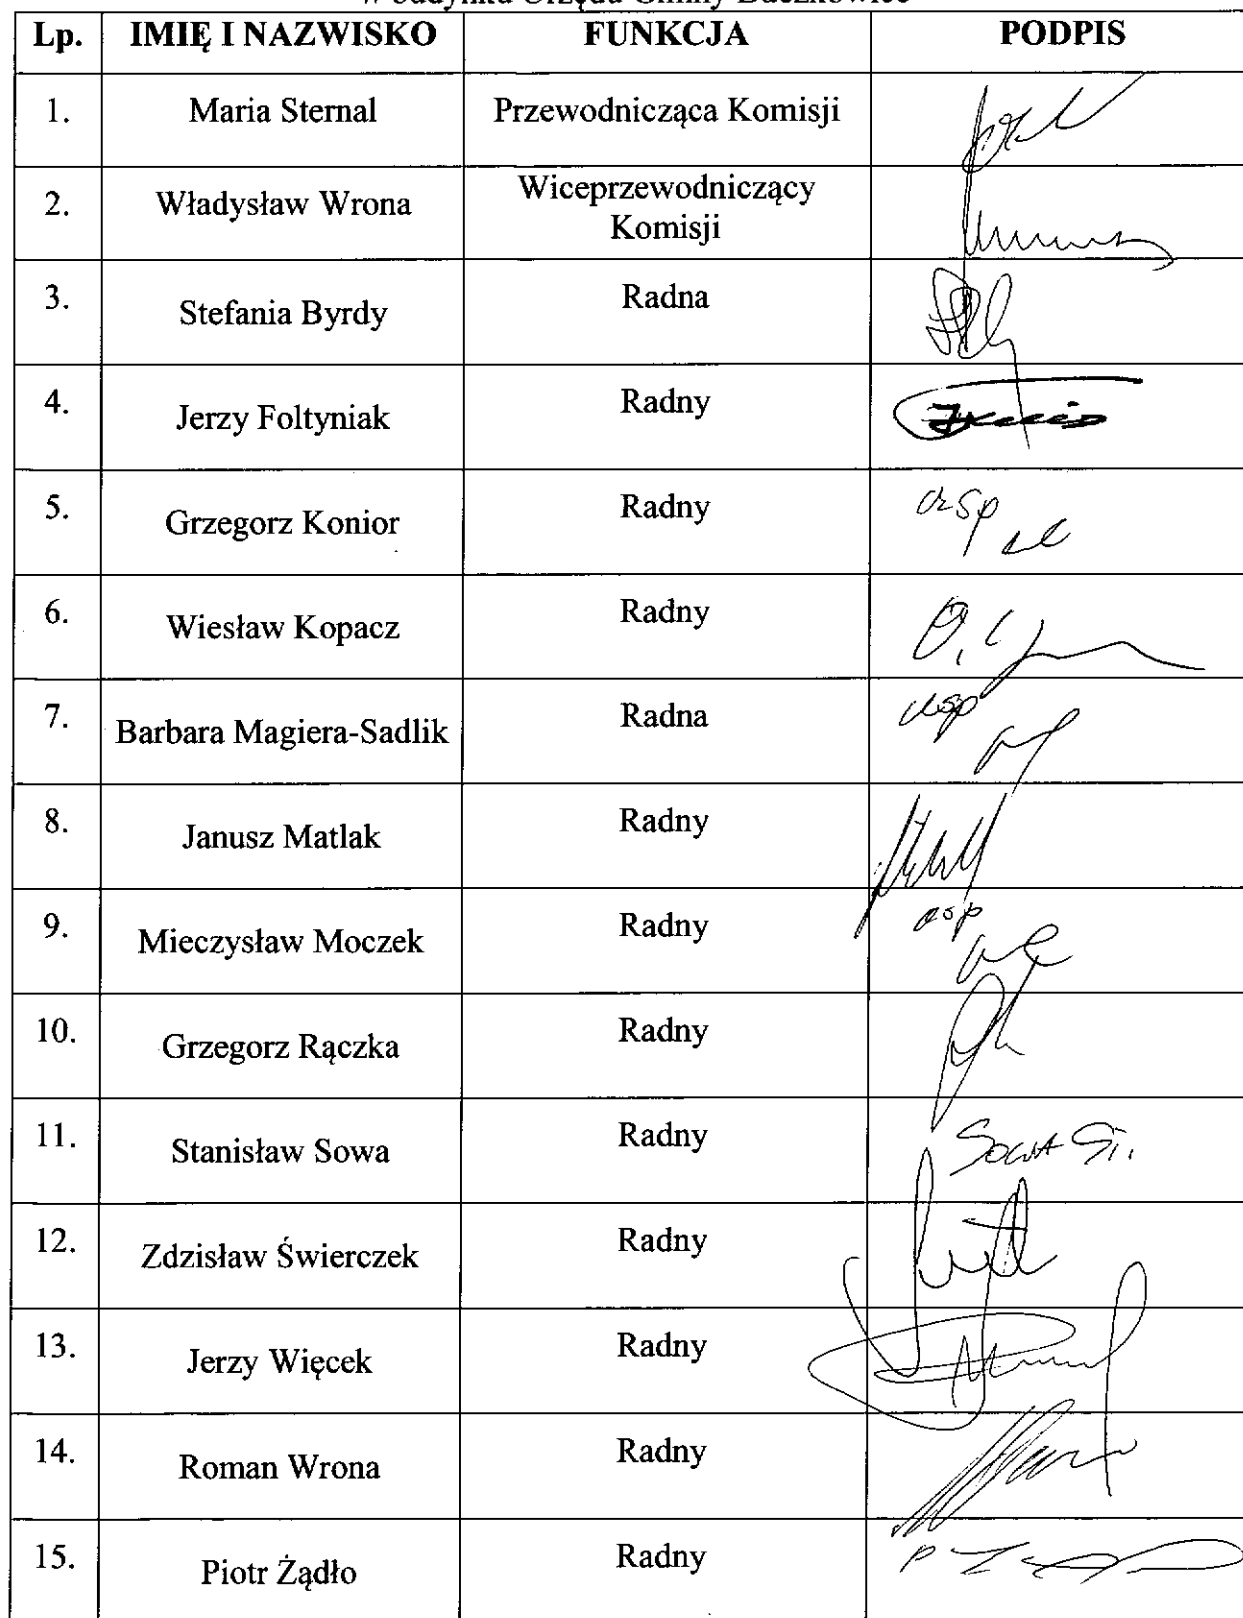 w budynku Urzędu Gminy Buczkowice
Lp. IMIĘ I NAZWISKO FUNKCJA PODPIS
1. Maria Sternal Przewodnicząca Komisji
2. Władysław Wrona Wiceprzewodniczący
Komisji
3. Stefania Byrdy Radna
4. Jerzy Foltyniak Radny
5. Grzegorz Konior Radny
6. Wiesław Kopacz Radny
7. Barbara Magiera-Sadlik Radna
8. Janusz Matlak Radny
9. Mieczysław Moczek Radny
10. Grzegorz Rączka Radny
11. Stanisław Sowa Radny Sowa St.
12. Zdzisław Świerczek Radny
13. Jerzy Więcek Radny
14. Roman Wrona Radny
15. Piotr Żądło Radny